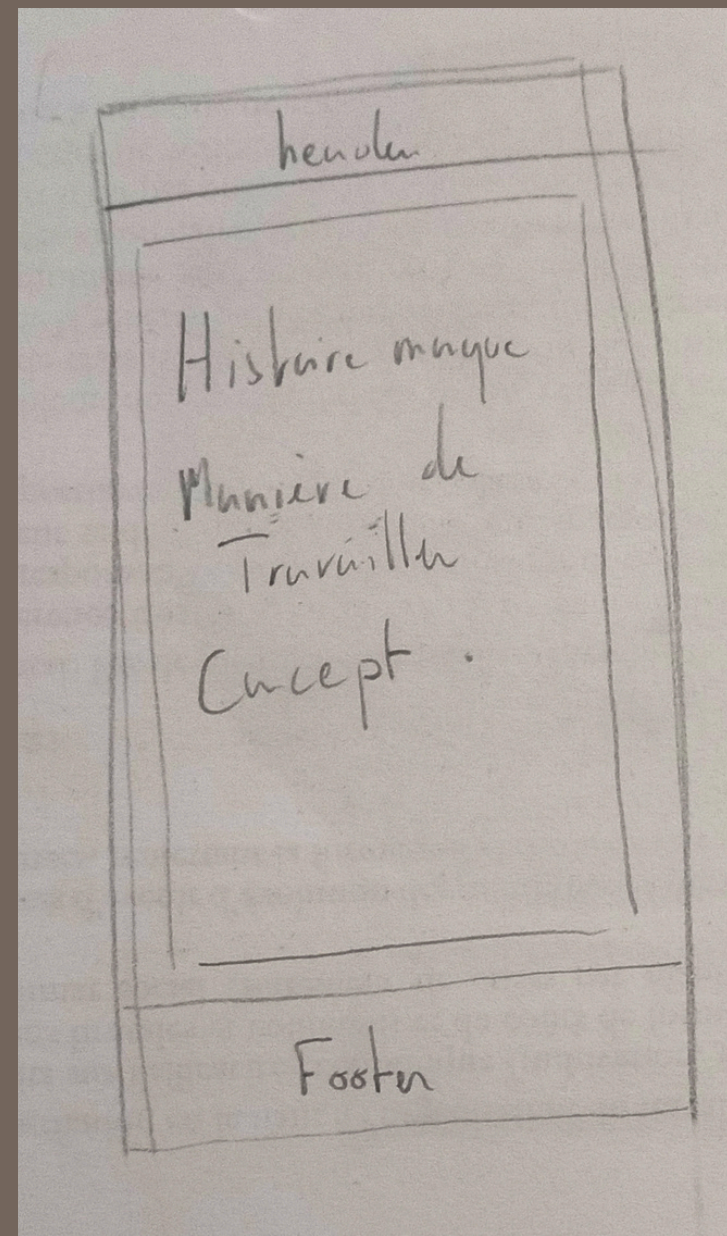 header
Histoire marque
Manière de
Travailler
Concept.
Footer